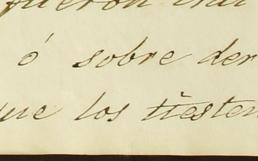 fueron
ó sobre der
que los tiesten